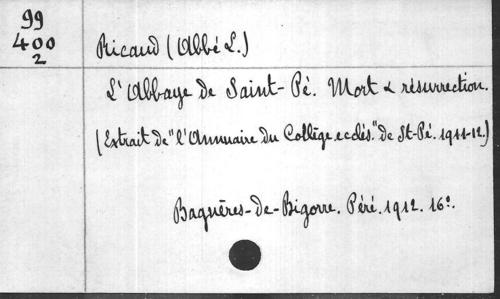 99
400
2
Ricaud (Abbé L.)
L'Abbaye de Saint-Pé. Mort & résurrection.
(Extrait de "l'Annuaire du Collège ecclés." de St-Pé. 1911-12.)
Bagnères-de-Bigorre. Péré. 1912. 16º.